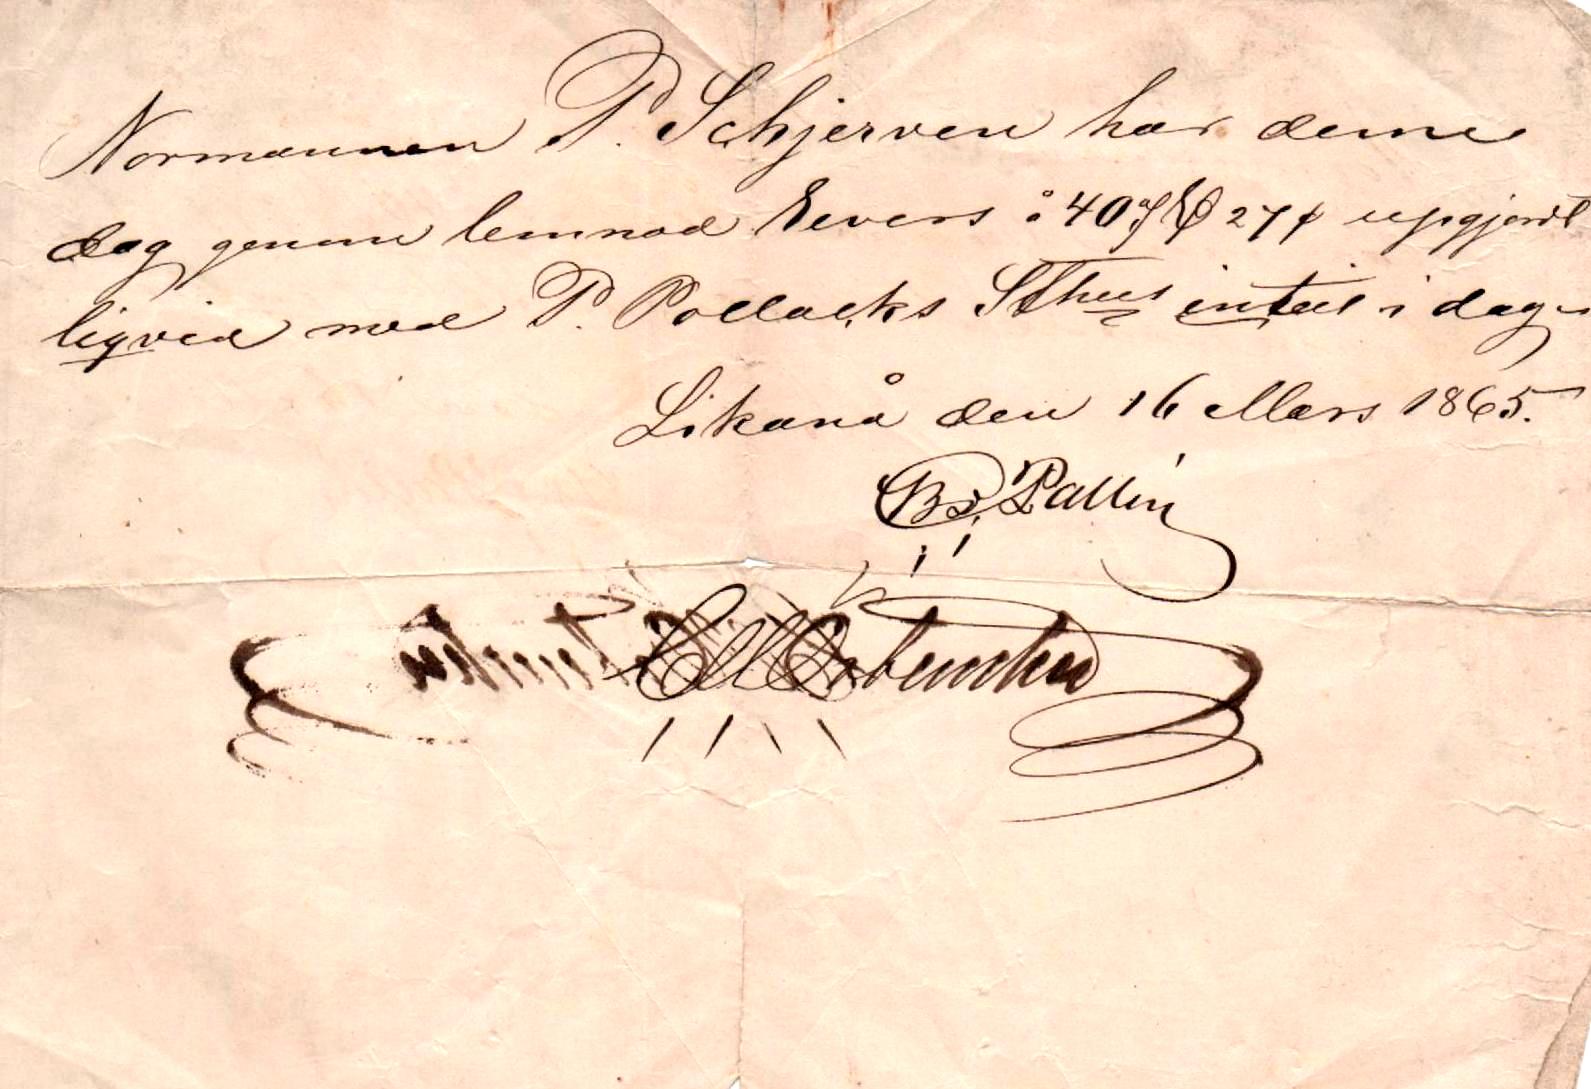 Normannen P. Schjerven har denne
dag genom lemnad Revers å 40 27 uppgjordt
liqvid med P. Pollacks Sthus intill i dag
Likanå den 16 Mars 1865.
Pallin